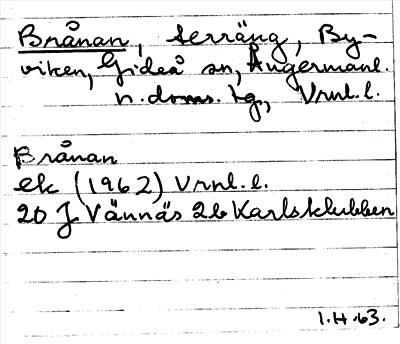 Brånan, terräng, By-
viken, Gideå sn, Ångermanl.
n. doms. tg, Vrnl. l.
Brånan
ek (1962) Vrnl. l.
20 J Vännäs 2b Karlsklubben
1.H.63.